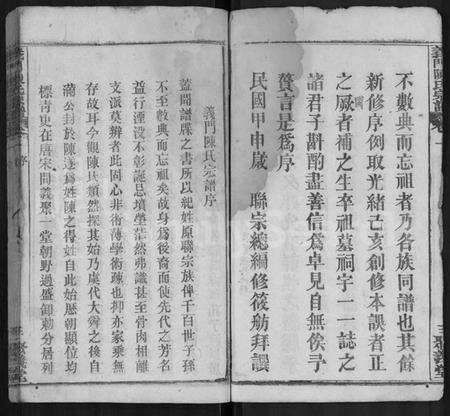 義門陳氏宗譜卷一
不數典而忘祖者乃各族同譜也其餘
新修序例取光緒己亥創修本誤者正
之闕者補之生卒祖墓祠宇一一誌之
諸君子斟酌盡善信為卓見自無俟予
贅言是為序
民國甲申歲 聯宗總編修筱舫拜譔
聚義堂
義門陳氏宗譜序
蓋聞譜牒之書所以紀姓原聯宗族俾千百世子孫
不至數典而忘祖矣故身為後裔而使先代之芳名
益行湮沒不彰誕忌墳塋茫然弗識甚至骨肉相離
支派莫辨者此固心非術薄學術疎也抑亦家乘無
存故耳今觀陳氏類然探其始乃虞代大舜之後自
滿公封於陳遂為姓陳之得姓自此始歷朝顯位均
標青史在唐宋間義聚一堂朝野過盛卸勅分居列